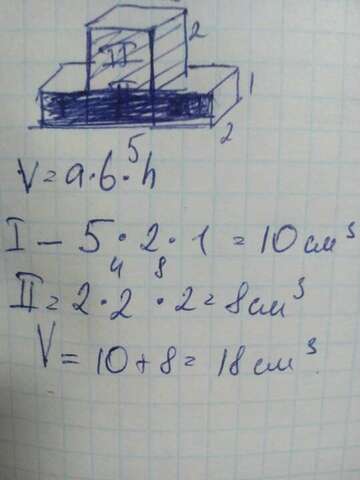 2
II
I
1
2
5
V = a · b · h
I – 5 · 2 · 1 = 10 см³
4 8
II = 2 · 2 · 2 = 8 см³
V = 10 + 8 = 18 см³